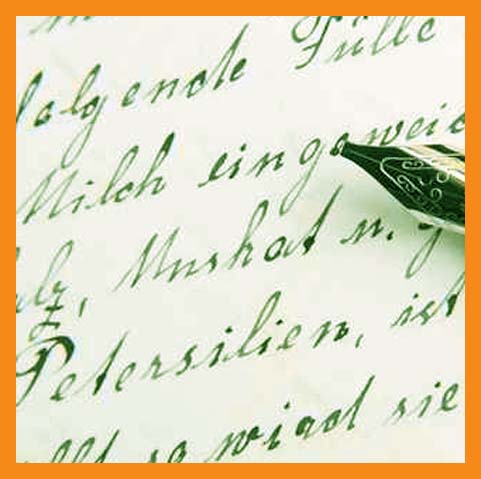 folgende Fülle
Milch eingeweic
alz, Muskat u.
Petersilien, ist
so wird sie